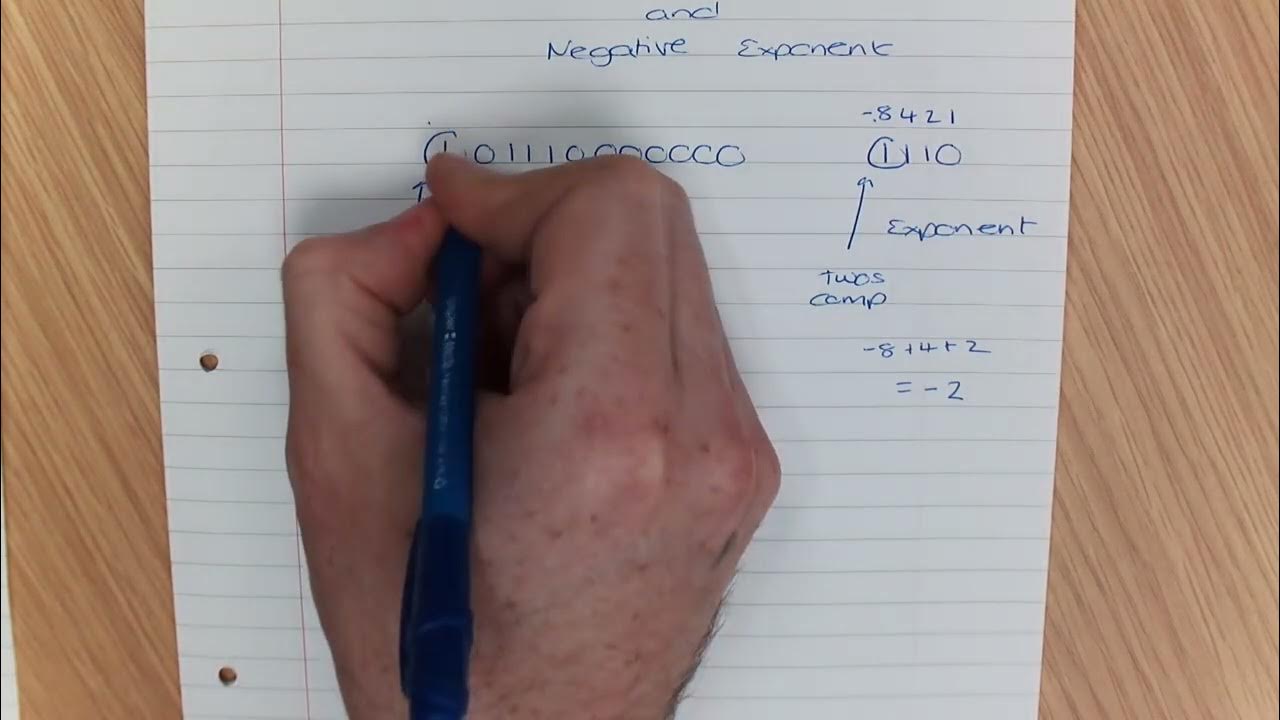 and
Negative Exponent
-8 4 2 1
1.01110000000 1110
Exponent
Twos
comp
-8+4+2
= -2